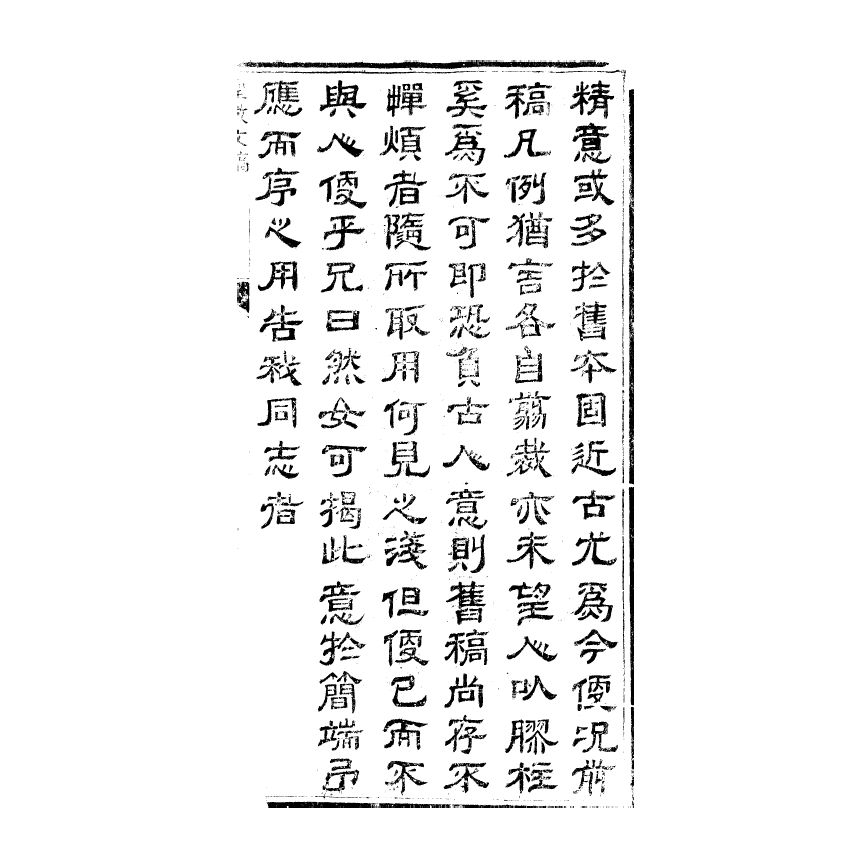 精意或多扵舊夲固近古尤爲今便况前
稿凡例猶言各自翦裁亦未望人以膠柱
奚爲不可即恐負古人意則舊稿尚存不
憚煩者隨所取用何見之淺但便已而不
與人便乎兄曰然女可揭此意扵簡端弟
應而序之用告我同志者
文稿